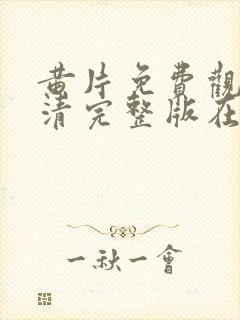 黄片免費觀
清完整版在
一秋一會